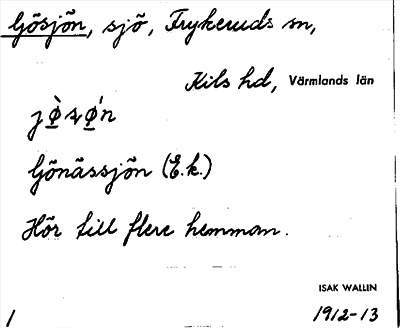 Gösjön, sjö, Frykeruds sn,
Kils hd, Värmlands län
jø̀ʂǿn
Gönässjön (E.k.)
Hör till flere hemman.
ISAK WALLIN
1 1912-13